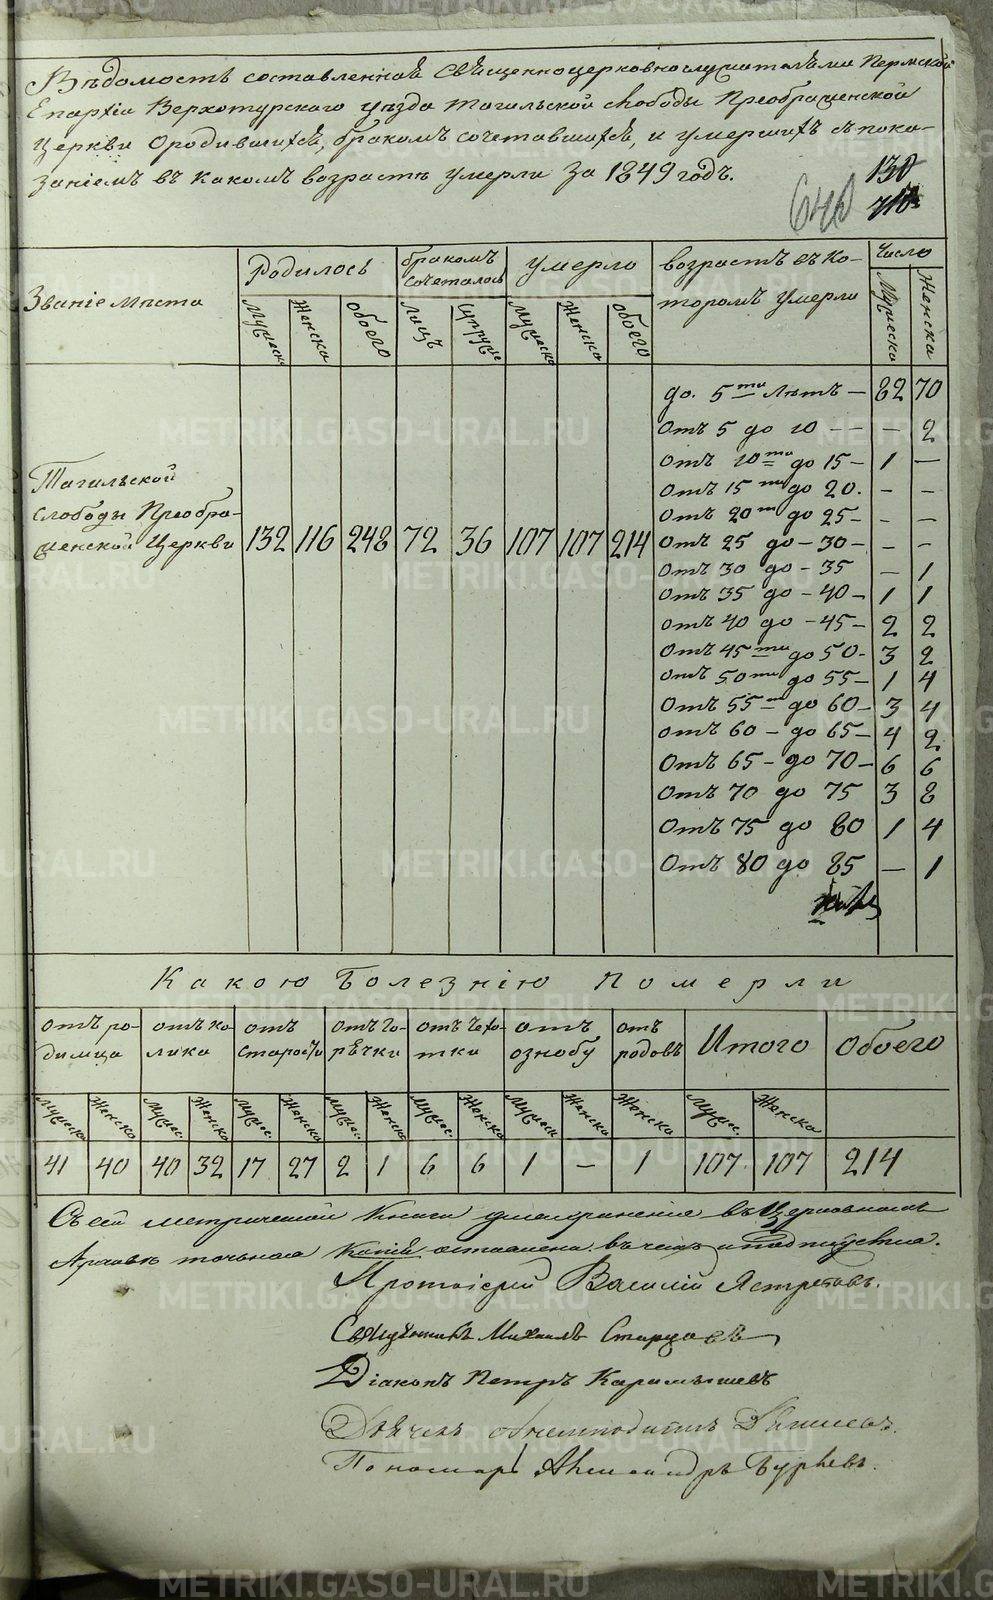 Вѣдомость составленная Священноцерковнослужателѣми Пермской
Епархіи Верхотурскаго уѣзда Тагильской слободы Преображенской
Церкви о родившихся, бракомъ сочетавшихся, и умершихъ съ пока-
заніемъ въ какомъ возрастѣ умерли за 1849 годъ.
130
640
710
Званіе мѣста
Родилось
бракомъ сочеталось
умерло
возрастъ въ ко-
торомъ умерли
Число
Мужеска Женска обоего Лицъ Супруж Мужеска Женска обоего Мужеска Женска
Тагильской
слободы Преобра-
женской Церкви 132 116 248 72 36 107 107 214
до. 5ти Лѣтъ — 82 70
Отъ 5 до 10 - - — 2
Отъ 10ти до 15 - 1 —
Отъ 15ти до 20. - -
Отъ 20ти до 25 - - -
Отъ 25 до - 30 - - -
Отъ 30 до - 35 - 1
Отъ 35 до - 40 - 1 1
Отъ 40 до - 45 - 2 2
Отъ 45ти до 50 - 3 2
Отъ 50ти до 55 - 1 4
Отъ 55ти до 60 - 3 4
отъ 60 - до 65 - 4 2
Отъ 65 - до 70 - 6 6
Отъ 70 до 75 3 8
Отъ 75 до 80 1 4
Отъ 80 до 85 — 1
Какою Болезнію Померли
отъ ро-
димца
отъ ко
лика
отъ
старости
Отъ Го-
рѣчки
отъ Чехо-
тки
отъ
ознобу
отъ
родовъ
Итого
Обоего
Мужеска Женска Мужес. Женска Мужес. Женска Мужес. Женска Мужес. Женска Мужеск Женска Женска Мужес. Женска
41 40 40 32 17 27 2 1 6 6 1 — 1 107 107 214
Съ сей метрической Книги для храненія въ Церковномъ
Архивѣ точная Копія оставлена въ чемъ и подпишемся.
Протоіерей Василій Ястребовъ.
Священникъ Михаилъ Старцовъ
Діаконъ Петръ Карамышевъ
Дьячекъ
Пономарь Александръ
METRIKI.GASO-URAL.RU